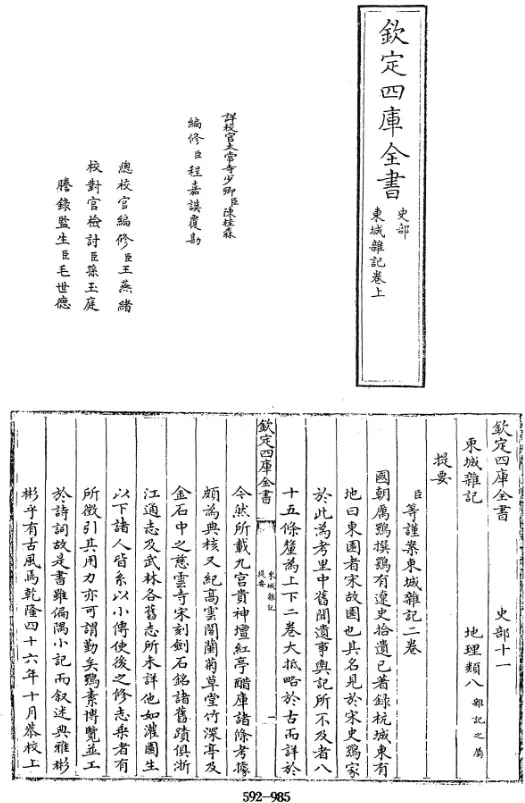 欽定四庫全書
史部
東城雜記卷上
詳校官太常寺少卿臣陳桂森
編修臣程嘉謨覆勘
總校官編修臣王燕緒
校對官檢討臣梁玉庭
謄錄監生臣毛世德
欽定四庫全書 史部十一
東城雜記 地理類八 雜記之屬
提要
臣等謹案東城雜記二卷
國朝厲鶚撰鶚有遼史拾遺已著錄杭城東有
地曰東園者宋故園也其名見於宋史鶚家
於此為考里中舊聞遺事輿記所不及者八
十五條釐為上下二卷大抵略於古而詳於
欽定四庫全書
東城雜記
提要
一
今然所載九宮貴神壇紅亭醋庫諸條考據
頗為典核又紀高雲閣蘭菊草堂竹深亭及
金石中之慈雲寺宋刻劍石銘諸舊蹟俱浙
江通志及武林各舊志所未詳他如灌園生
以下諸人皆系以小傳使後之修志乗者有
所徵引其用力亦可謂勤矣鶚素博覽並工
於詩詞故是書雖偏隅小記而叙述典雅彬
彬乎有古風焉乾隆四十六年十月恭校上
592-985